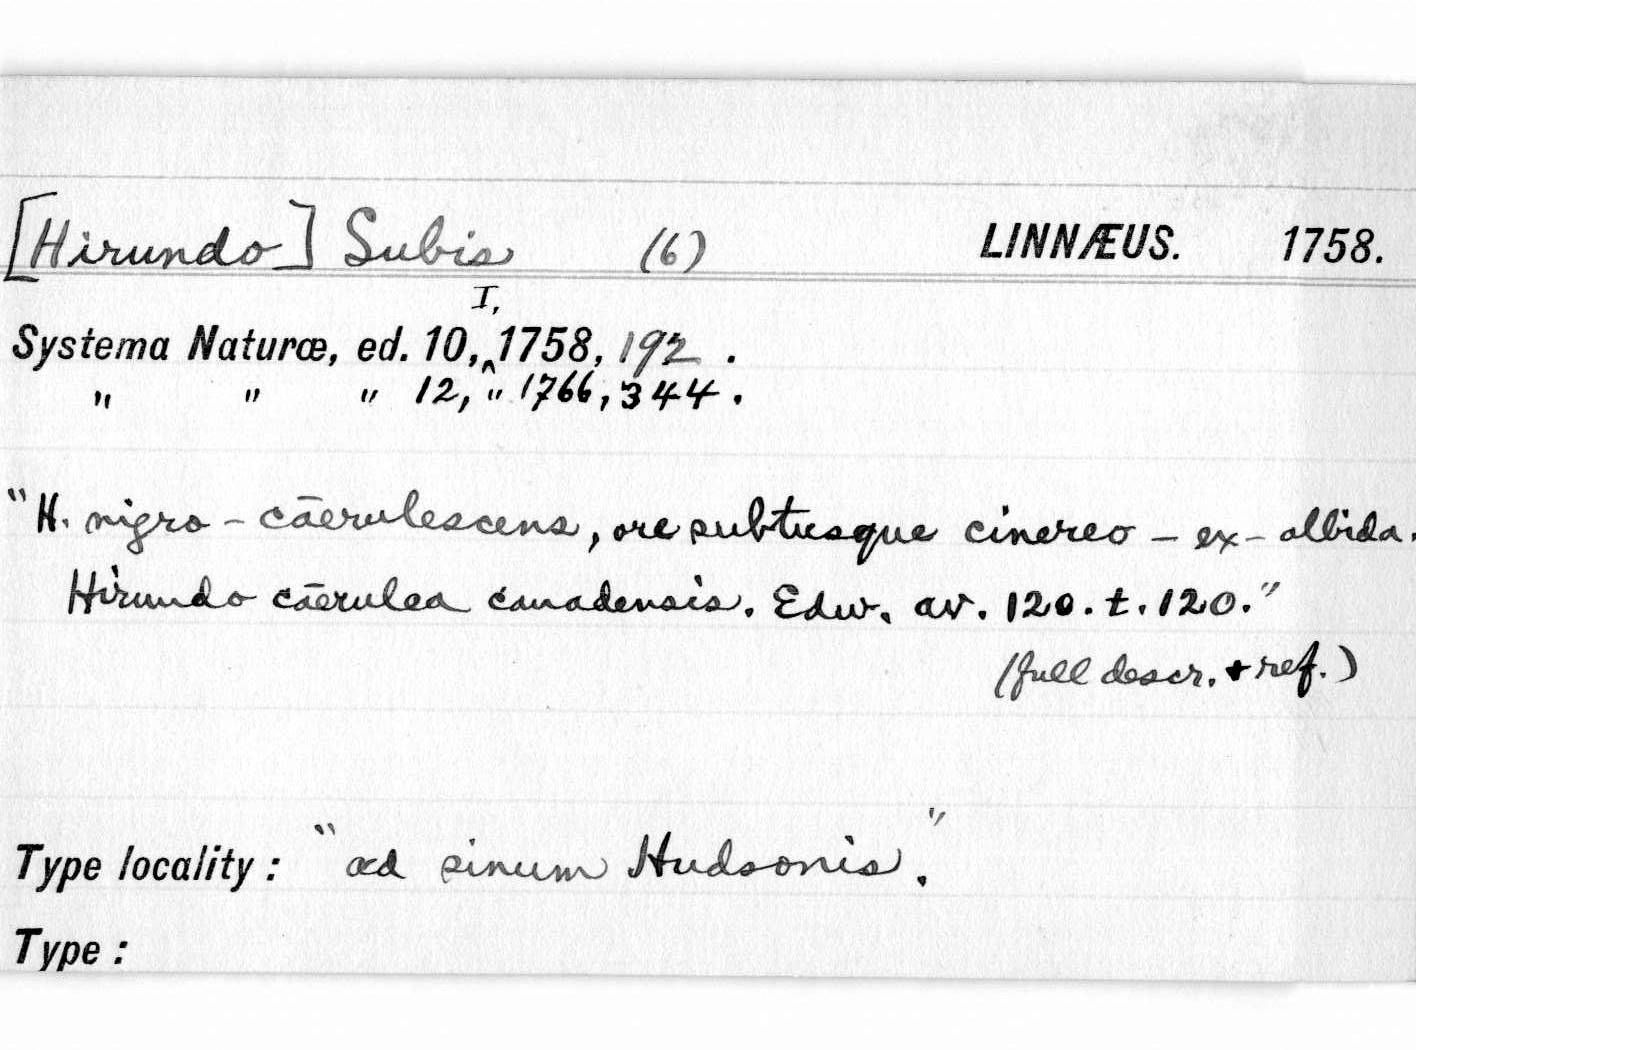 [Hirundo] Subis (6) LINNÆUS. 1758.
I,
Systema Naturæ, ed. 10, ^ 1758, 192 .
" " " 12, " 1766, 344 .
"H. nigro-cāerulescens, ore subtusque cinereo-ex-albida.
Hirundo cāerulea canadensis. Edw. av. 120. t. 120."
(full descr. + ref.)
Type locality : "ad sinum Hudsonis."
Type :